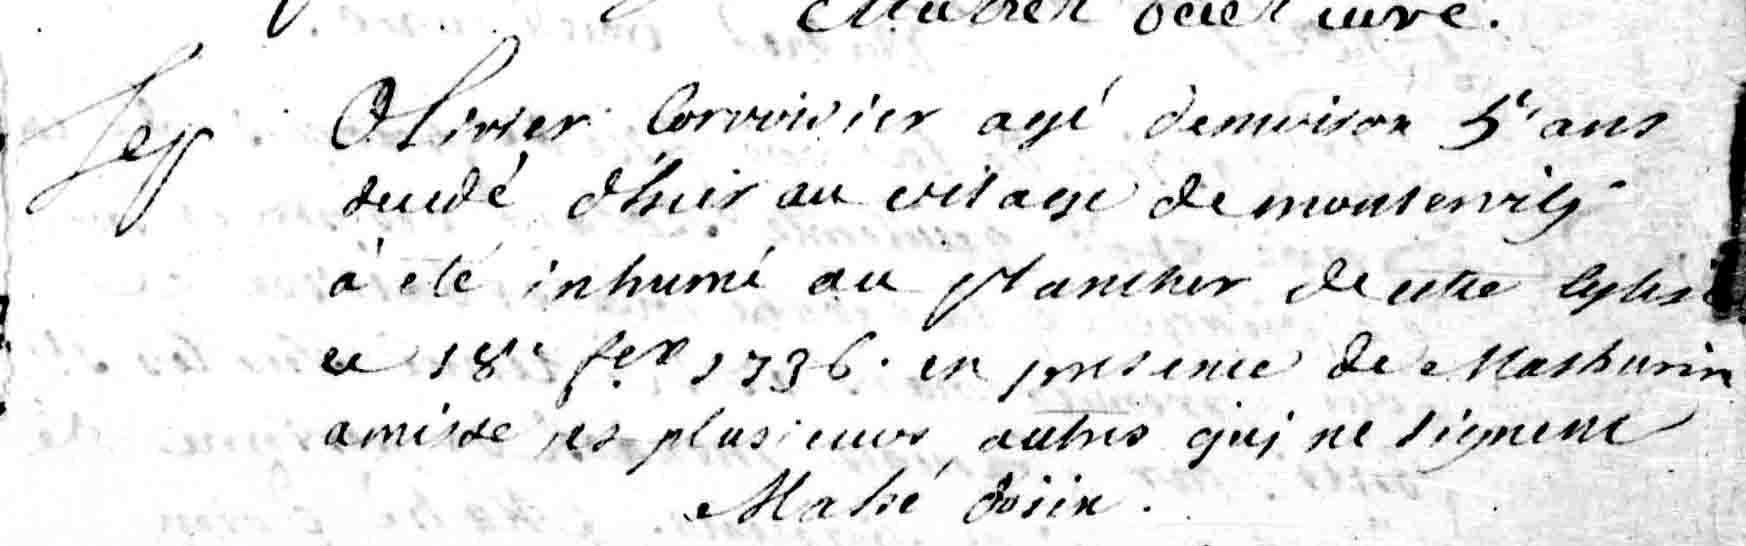 recteur curé.
Sep Olivier Corvoisier agé denviron 5 ans
decedé d'hier au vilage de
à eté inhumé au plancher de cette Eglise
ce 18e fev 1736. en presence de Mathurin
amisse es plusieurs autres quj ne signent
Mahé